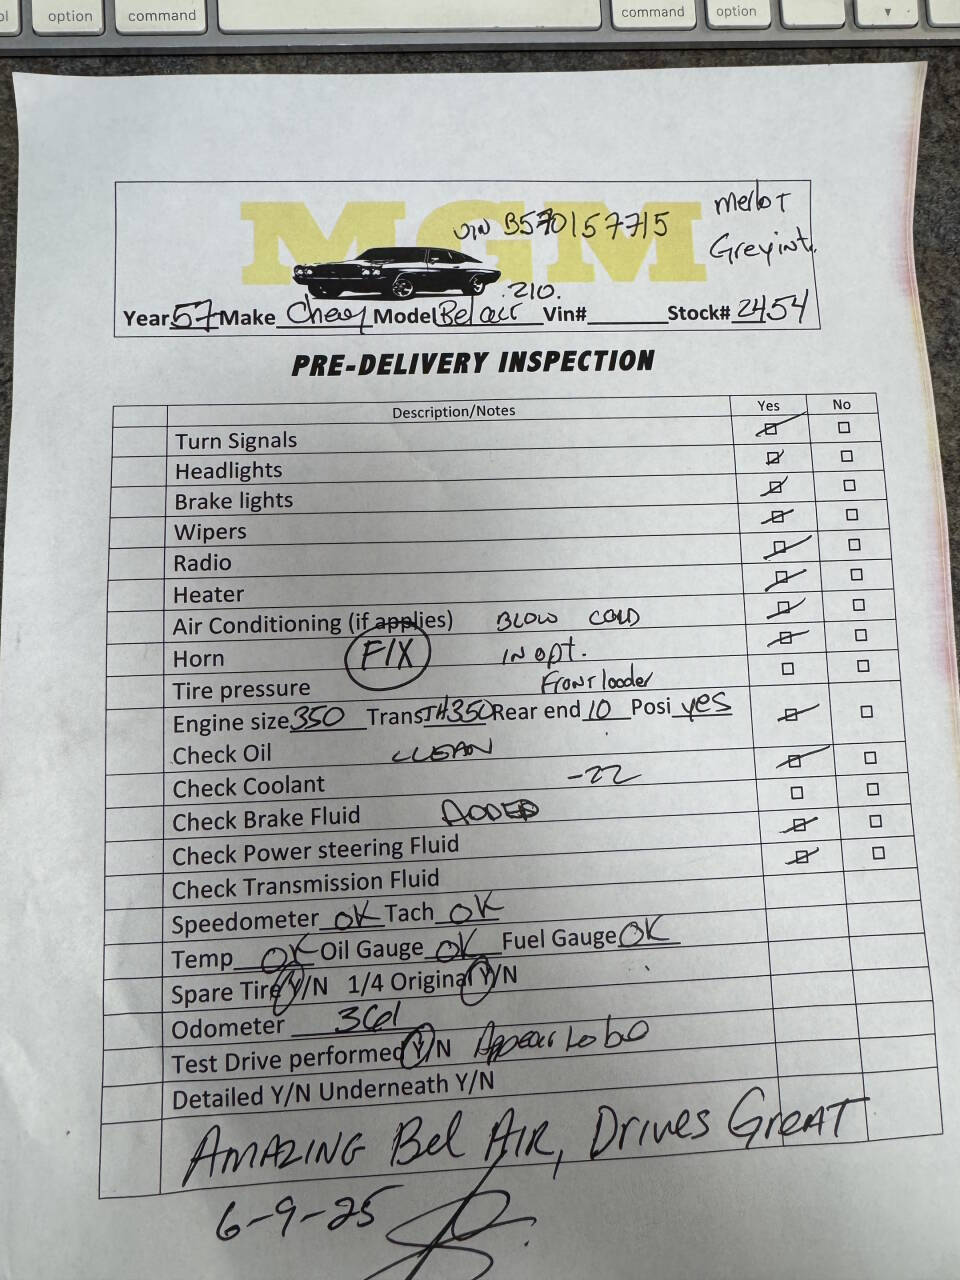 option command command option
MGM
VIN B570157715
Merlot
Grey int.
210.
Year 57 Make Chevy Model Bel air Vin# Stock# 2454
PRE-DELIVERY INSPECTION
Description/Notes Yes No
Turn Signals
Headlights
Brake lights
Wipers
Radio
Heater
Air Conditioning (if applies) BLOW COLD
Horn FIX IN OPT.
Tire pressure Front loader
Engine size 350 Trans TH350 Rear end 10 Posi yes
Check Oil CLEAN
Check Coolant -22
Check Brake Fluid ADDED
Check Power steering Fluid
Check Transmission Fluid
Speedometer OK Tach OK
Temp OK Oil Gauge OK Fuel Gauge OK
Spare Tire Y/N 1/4 Original Y/N
Odometer 361
Test Drive performed Y/N Appear to be
Detailed Y/N Underneath Y/N
AMAZING Bel AIR, Drives GreAT
6-9-25